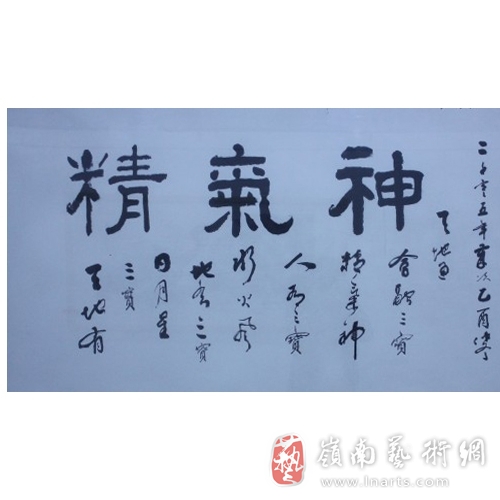 精氣神
天地有
三寶
日月星
地有三寶
水火風
人有三寶
精氣神
會融三寶
天地
二千零五年歲次乙酉
藝
嶺南藝術網
http://www.lnarts.com